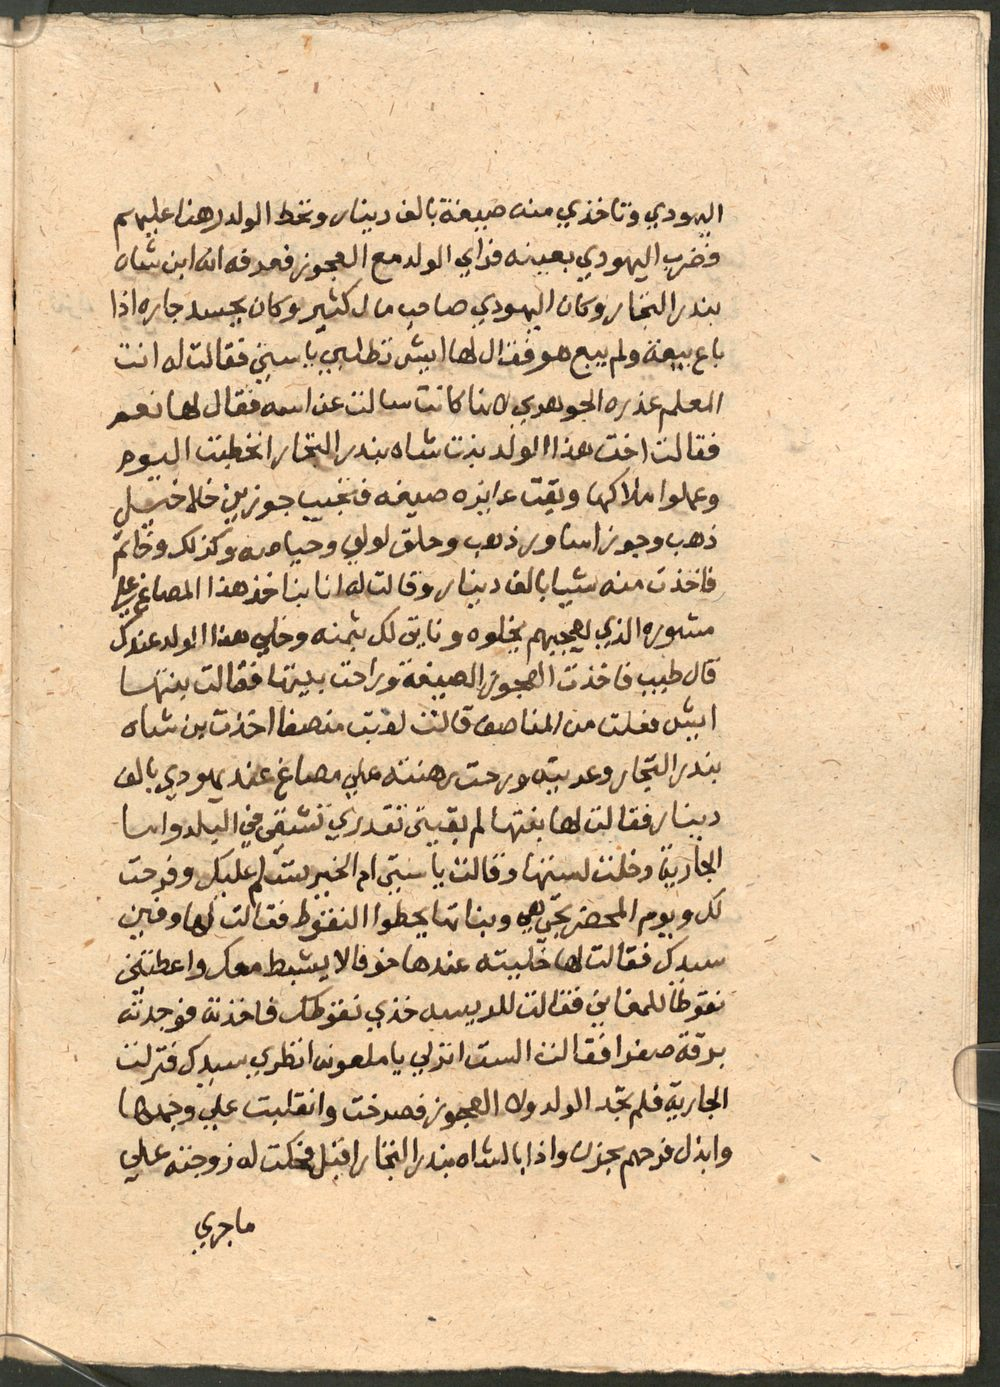 اليهودي وتاخذي منه صيغة بالف دينار ونحط الولد رهنا عليهم
فضرب اليهودي بعينه فراي الولد مع العجوز فعرفه انه ابن شاه
بندر التجار وكان اليهودي صاحب مال كثير وكان يحسد جاره اذا
باع بيعة ولم يبع هو فقال لها ايش تطلبي يا ستي فقالت له انت
المعلم عذره الجوهري لانها كانت سالت عن اسمه فقال لها نعم
فقالت اخت هذا الولد بنت شاه بندر التجار انخطبت اليوم
وعملوا ملاكها وبقت عايزه صيغه فتجيب جوزين خلاخيل
ذهب وجوز اساور ذهب وحلق لولي وحياصه وكذلك وخاتم
فاخذت منه شيا بالف دينار وقالت له انا بناخذ هذا المصاغ علي
مشوره الذي يعجبهم يخلوه وناتي لك بثمنه وخلي هذا الولد عندك
قال طيب فاخذت العجوز الصيغة وراحت بيتها فقالت بنتها
ايش فعلت من المناصف قالت لعبت منصفا اخذت بن شاه
بندر التجار وعريته ورحت رهنته علي مصاغ عند يهودي بالف
دينار فقالت لها بنتها لم بقيتي تقدري تشقي في البلد واما
الجارية دخلت لستها وقالت يا ستي ام الخير بتسلم عليكي وفرحت
لك ويوم المحضر تجي هي وبناتها يحطوا النقوط فقالت لها وفين
سيدك فقالت لها خليته عندها خوفا لا يشبط معك واعطتني
نقوطا للمغاني فقالت للريسه خذي نقوطك فاخذته فوجدته
برقة صفرا فقالت الست انزلي يا ملعونه انظري سيدك فنزلت
الجارية فلم تجد الولد ولا العجوز فصرخت وانقلبت علي وجهها
وابدل فرحهم بحزن واذا بالشاه بندر التجار اقبل فحكت له زوجته علي
ماجري